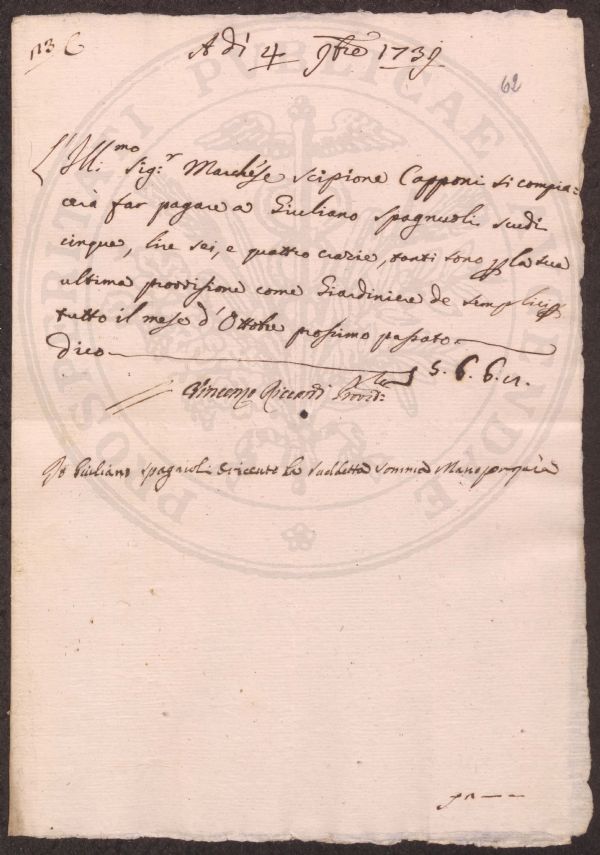 113 C
Adì 4 9bre 1739
62
L'Ill:mo Sig:r Marchese Scipione Capponi si compia=
cerà far pagare a Giuliano Spagnuoli scudi
cinque, lire sei, e quattro crazie, tanti sono p la sua
ultima provvisione come Giardiniere de semplici p
tutto il mese d'Ottobre prossimo passato
dico
5. 6. 6. 4.
Vincenzo Riccardi Provv:re
Io Giuliano Spagnioli o riceuto la suddetta somma Mano propria
PROSPERITATI PUBLICAE AUGENDAE